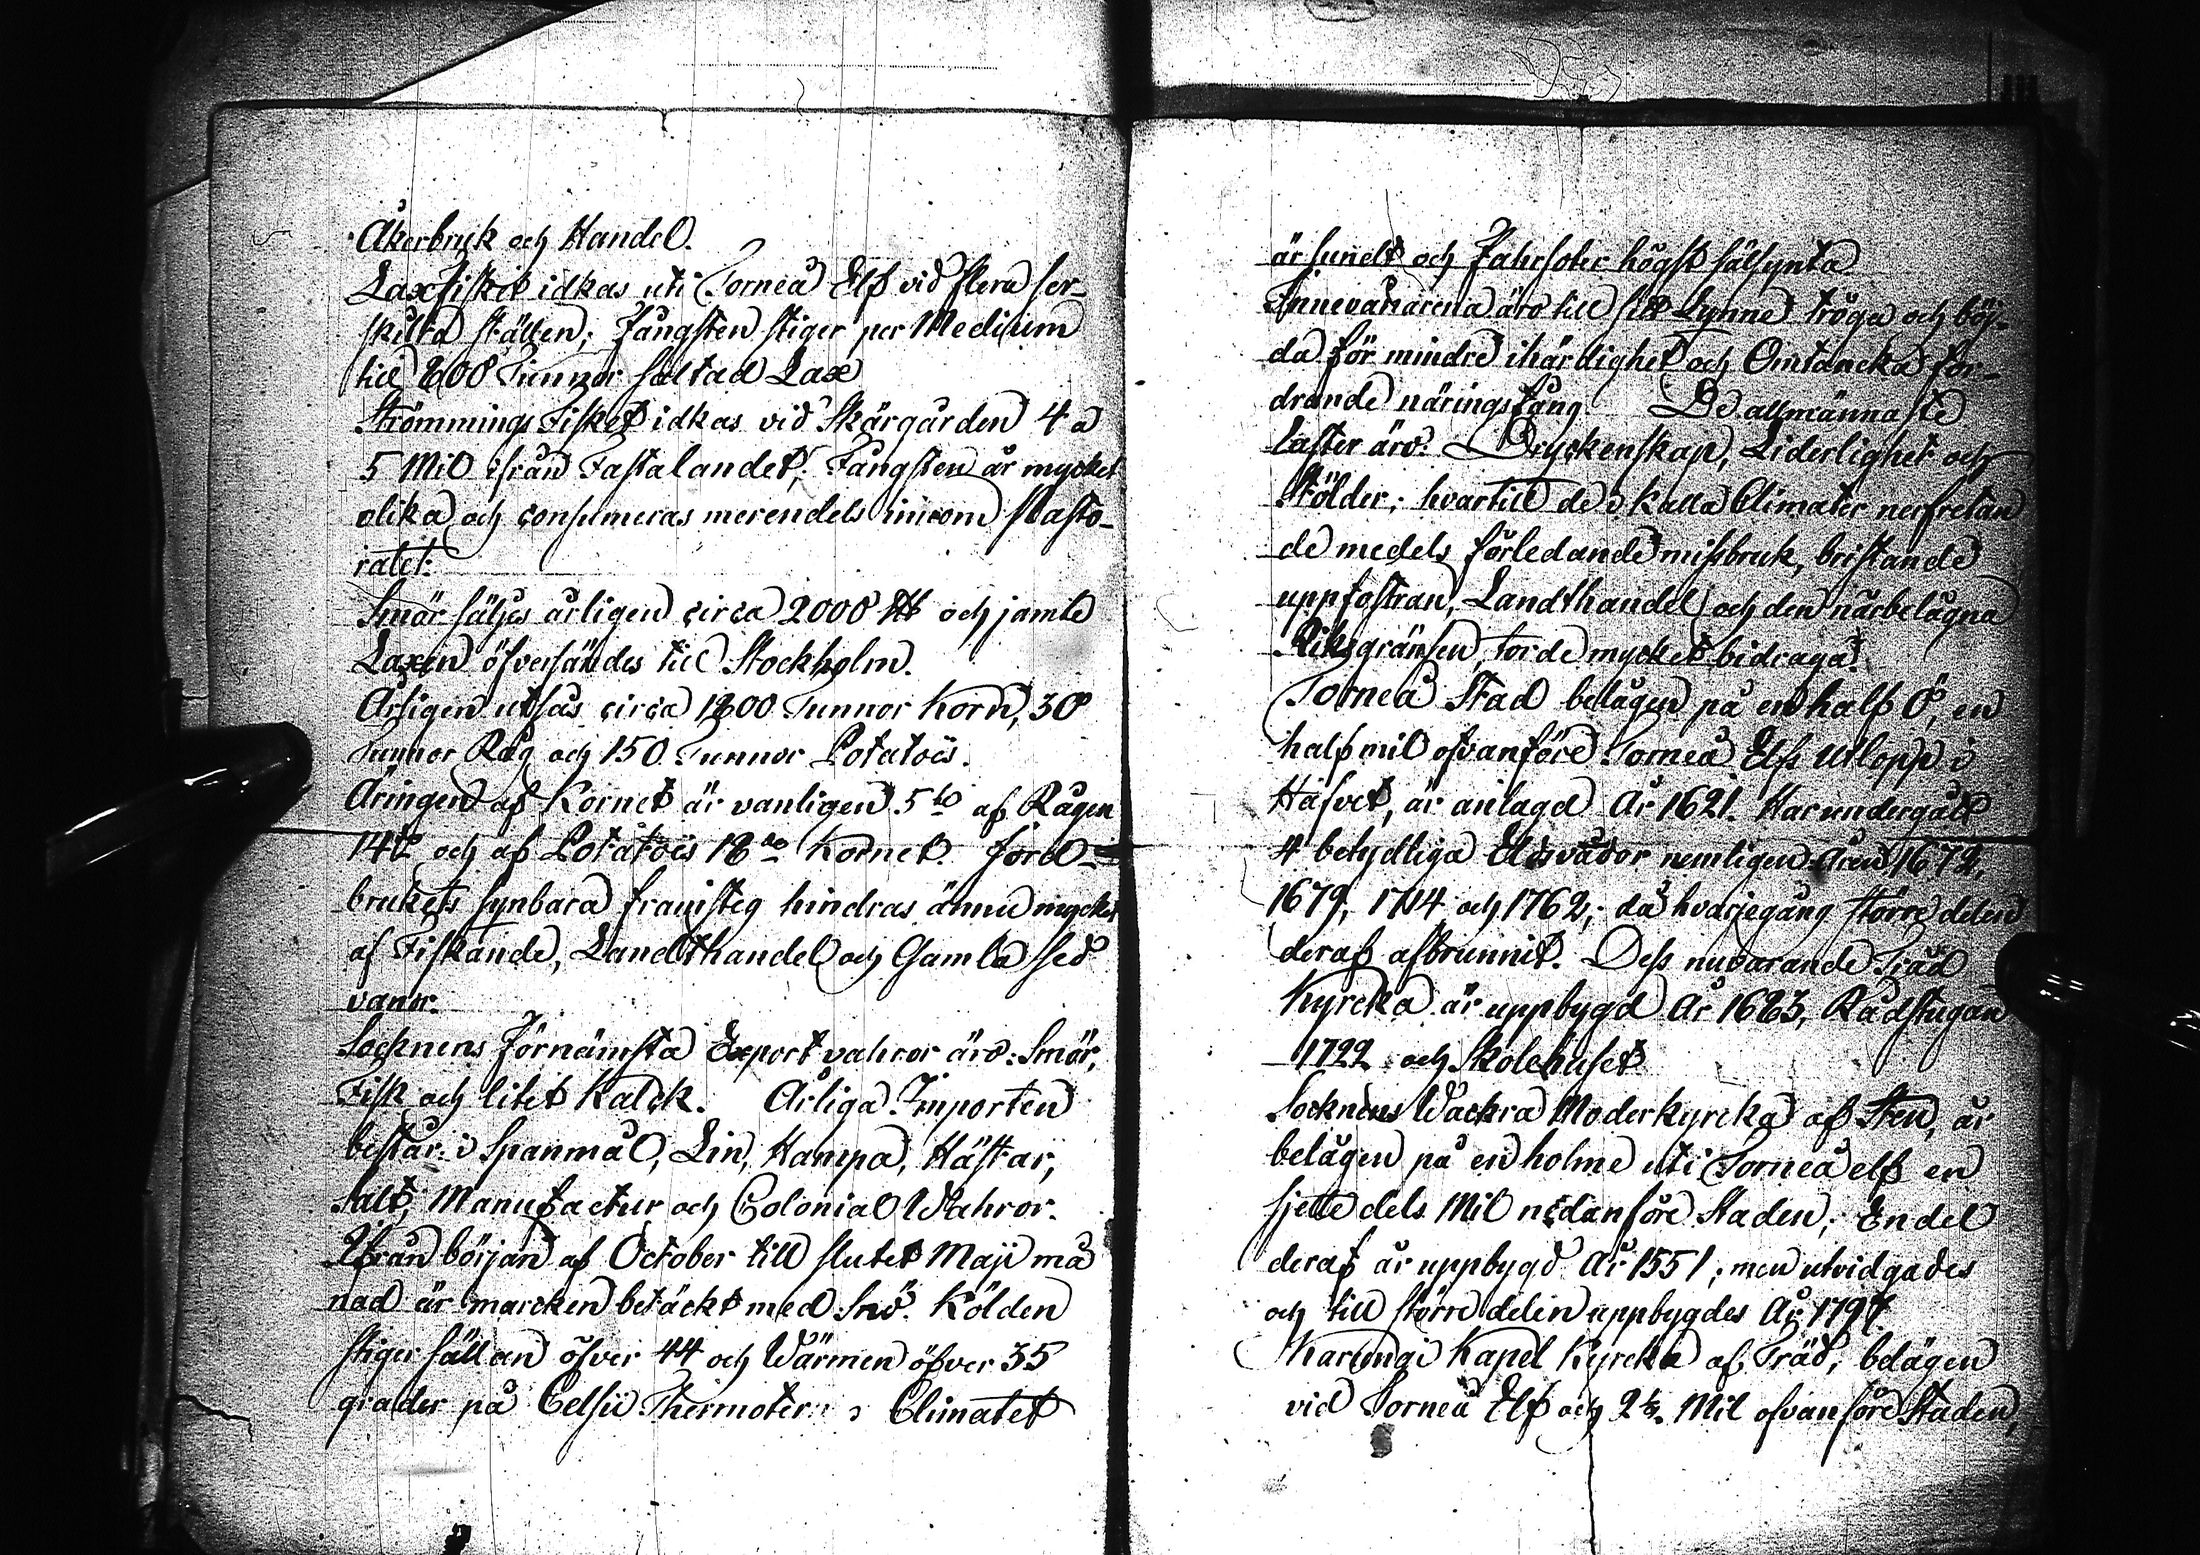 Åkerbruk och Handel.
Laxfisket idkas uti Torneå Elf vid flera ser-
skilta ställen; Fångsten stiger per Medium
till 800 Tunnor saltad Lax
Strömmings Fisket idkas vid Skärgården 4 a
5 Mil ifrån Fastalandet; Fångsten är mycket
olika och consumeras merendels innom Pasto-
ratet.
Smör säljes årligen circa 2000 och jamte
Laxen öfversändes till Stockholm.
Årligen utsås circa 1800 Tunnor Korn, 30
Tunnor Råg och 150 Tunnor Potatoës.
Äringen af Kornet är vanligen 5to af Rågen
14de och af Potatoës 18de Kornet. Jord-
brukets synbara framsteg hindras ännu mycket
af Fiskande, Landthandel och Gamla sed
vanor.
Socknens Förnämsta Export vahror äro: Smör,
Fisk och litet Kalck. Årliga Importen
består i Spanmål, Lin, Hampa, Hästar,
Salt, Manufactur och Colonial Wahror.
Ifrån början af October till slutet Maji må
nad är marcken betäckt med Snö. Kölden
stiger sällan öfver 44 och Wärmen öfver 35
grader på Celsii Thermoter. Climatet
är sundt och Fahrsoter högst sälsynta
Innevånarena äro till sitt Lynne tröga och böj-
da för mindre ihärdighet och Omtancka for-
drande näringsfång. De allmännaste
laster äro: Dryckenskap, Liderlighet och
Stölder; hvartill de i kalla Climater nerfretan
de medels förledande missbruk, bristande
uppfostran, Landthandel och den närbelägna
Riksgränsen torde mycket bidraga.
Torneå Stad belägen på en half Ö, en
half mil ofvanföre Torneå Elfs Utlopp i
Hafvet, är anlagd År 1621. Har undergått
4 betydliga Eldsvådor nemligen Åren 1672,
1679, 1714 och 1762; då hvarjegång större delen
deraf afbrunnit. Dess nuvarande Träd
Kyrcka är uppbygd År 1683, Rådstugan
1722 och Skolehuset
Socknens Wackra Moderkyrcka af Sten, är
belägen på en holme uti Torneå elf en
sjette dels Mil nedanföre Staden; En del
deraf är uppbygd År 1551; men utvidgades
och till större delen uppbygdes År 1797.
Karungi Kapel Kyrcka af Träd, belägen
vid Torneå Elf och 2 ½ Mil ofvanföre Staden,